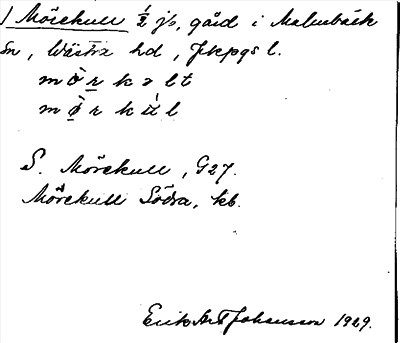 1 Mörekull ½ js, gård i Malmbäck
sn, Västra hd, Jkpgs l.
m ö̀ r k ə l t
m ö̀ r k ú l
S. Mörekull, G27.
Mörekull Södra, kb.
Erik Art Johansson 1929.